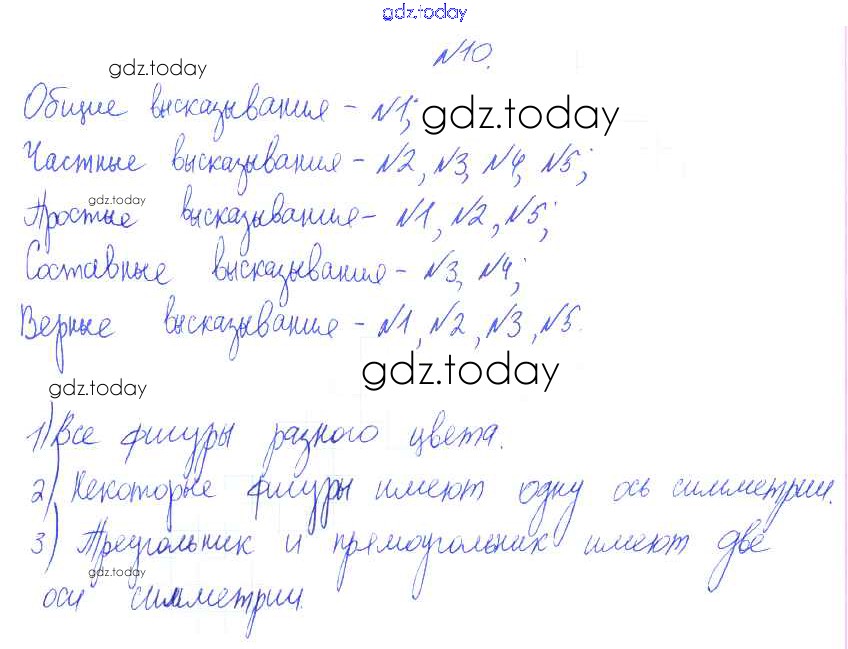 gdz.today
№10.
gdz.today
Общие высказывания - №1; gdz.today
Частные высказывания - №2, №3, №4, №5;
gdz.today
Простые высказывания - №1, №2, №5;
Составные высказывания - №3, №4;
Верные высказывания - №1, №2, №3, №5.
gdz.today
gdz.today
1) Все фигуры разного цвета.
2) Некоторые фигуры имеют одну ось симметрии.
3) Треугольник и прямоугольник имеют две
gdz.today
оси симметрии.